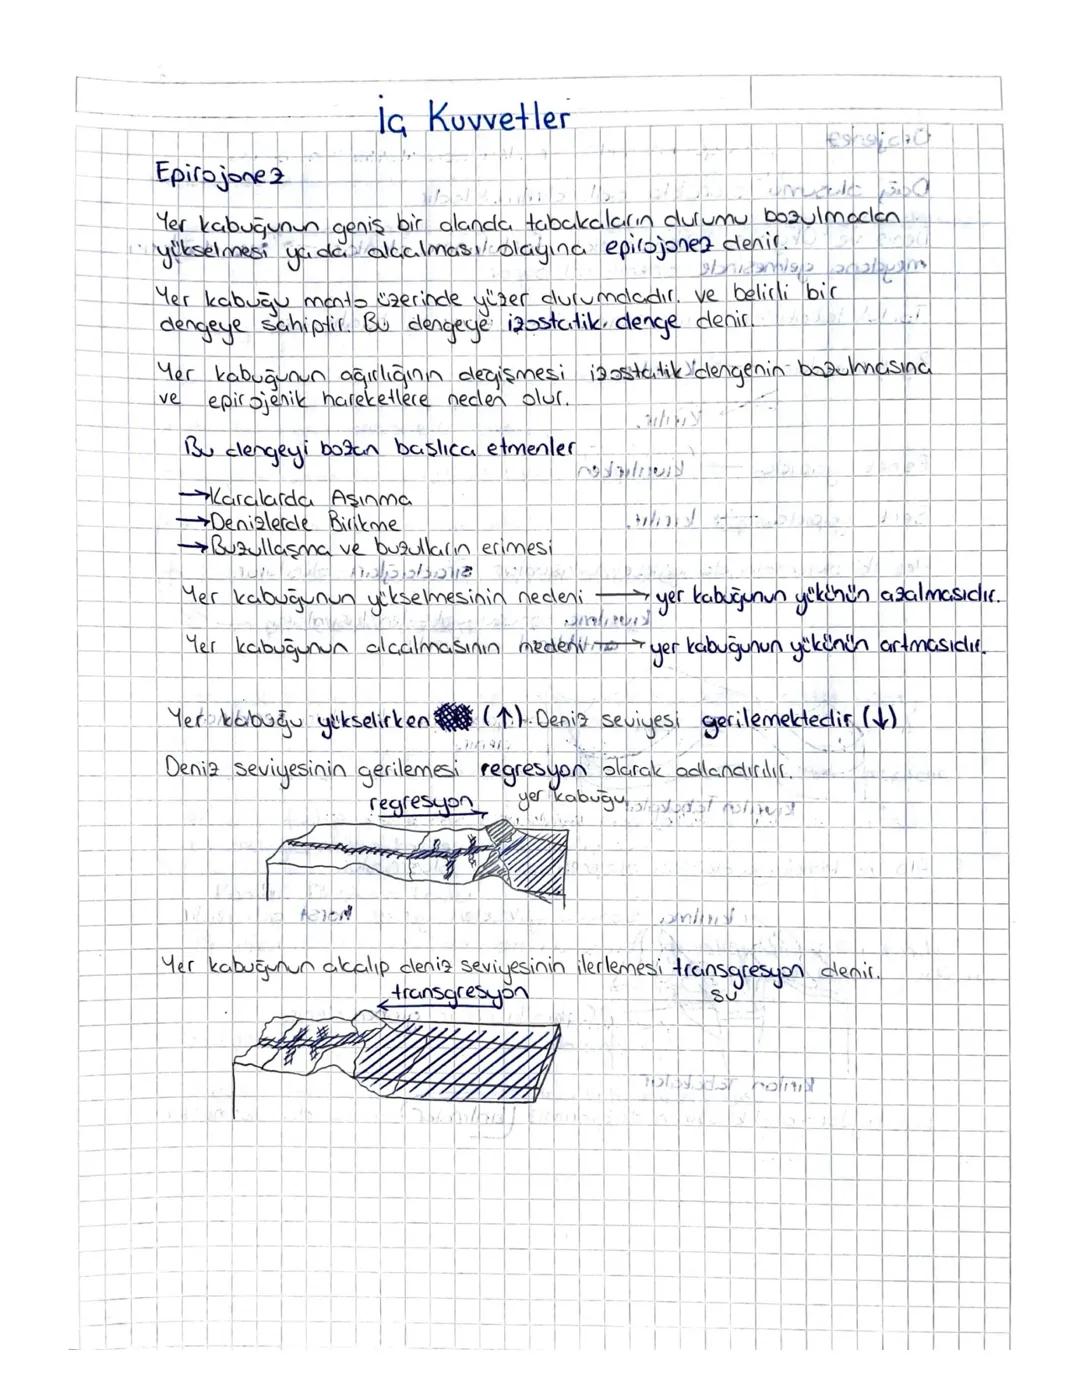 İç Kuvvetler
Epirojonez
Yer kabuğunun geniş bir alanda tabakaların durumu bozulmadan
yükselmesi ya da alçalması olayına epirojonez denir.
Yer kabuğu manto üzerinde yüzer durumdadır. ve belirli bir
dengeye sahiptir. Bu dengeye izostatik denge denir.
Yer kabuğunun ağırlığının değişmesi izostatik dengenin bozulmasına
ve epirojenik hareketlere neden olur.
Bu dengeyi bozan başlıca etmenler
→Karalarda Aşınma
→Denizlerde Birikme
→Buzullaşma ve buzulların erimesi
Yer kabuğunun yükselmesinin nedeni → yer kabuğunun yükünün azalmasıdır.
Yer kabuğunun alçalmasının nedeni → yer kabuğunun yükünün artmasıdır.
Yer kabuğu yükselirken (↑). Deniz seviyesi gerilemektedir (↓)
Deniz seviyesinin gerilemesi regresyon olarak adlandırılır.
regresyon yer kabuğu
Yer kabuğunun alçalıp deniz seviyesinin ilerlemesi transgresyon denir.
transgresyon su